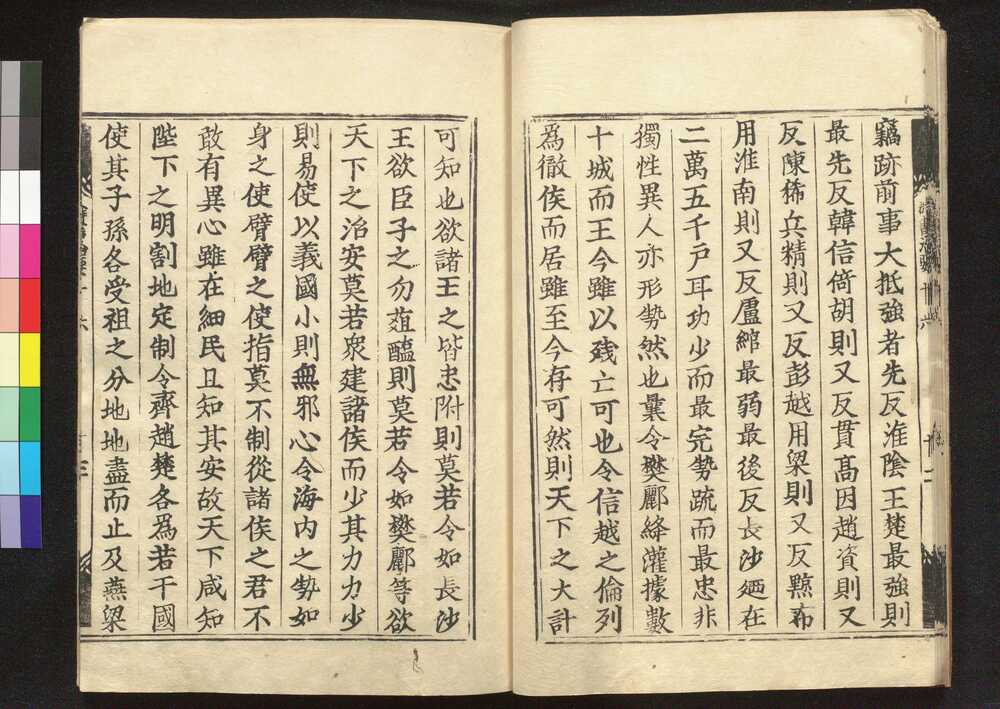 竊跡前事大抵強者先反淮陰王楚最強則
最先反韓信倚胡則又反貫髙因趙資則又
反陳狶兵精則又反彭越用梁則又反黥布
用淮南則又反盧綰最弱最後反長沙廼在
二萬五千戸耳功少而最完勢疏而最忠非
獨性異人亦形勢然也曩令樊酈絳灌據數
十城而王今雖以残亡可也令信越之倫列
為徹侯而居雖至今存可然則天下之大計
可知也欲諸王之皆忠附則莫若令如長沙
王欲臣子之勿葅醢則莫若令如樊酈等欲
天下之治安莫若衆建諸侯而少其力力少
則易使以義國小則無邪心令海内之勢如
身之使臂臂之使指莫不制從諸侯之君不
敢有異心雖在細民且知其安故天下咸知
陛下之明割地定制令齊趙楚各為若干國
使其子孫各受祖之分地地盡而止及燕梁